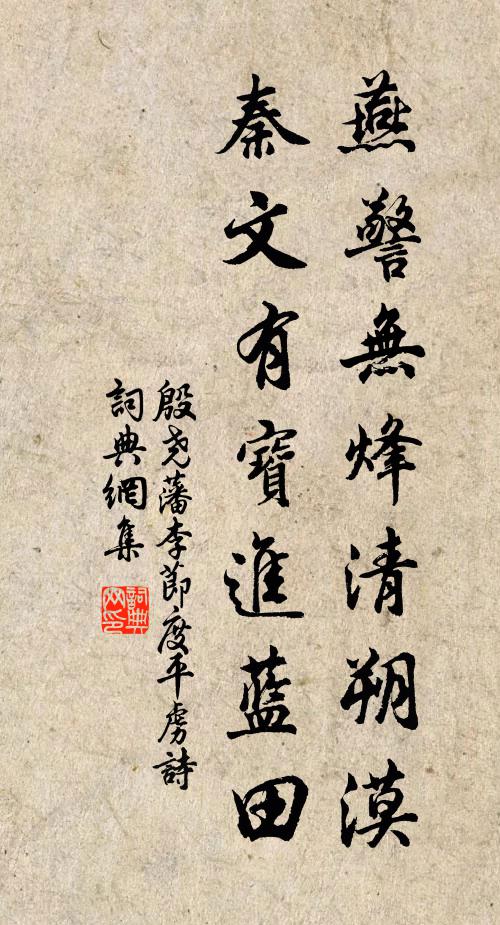 燕警無烽清朔漠
秦文有寶進藍田
殷尧藩李節度平虜詩
詞典網集
詞典網印